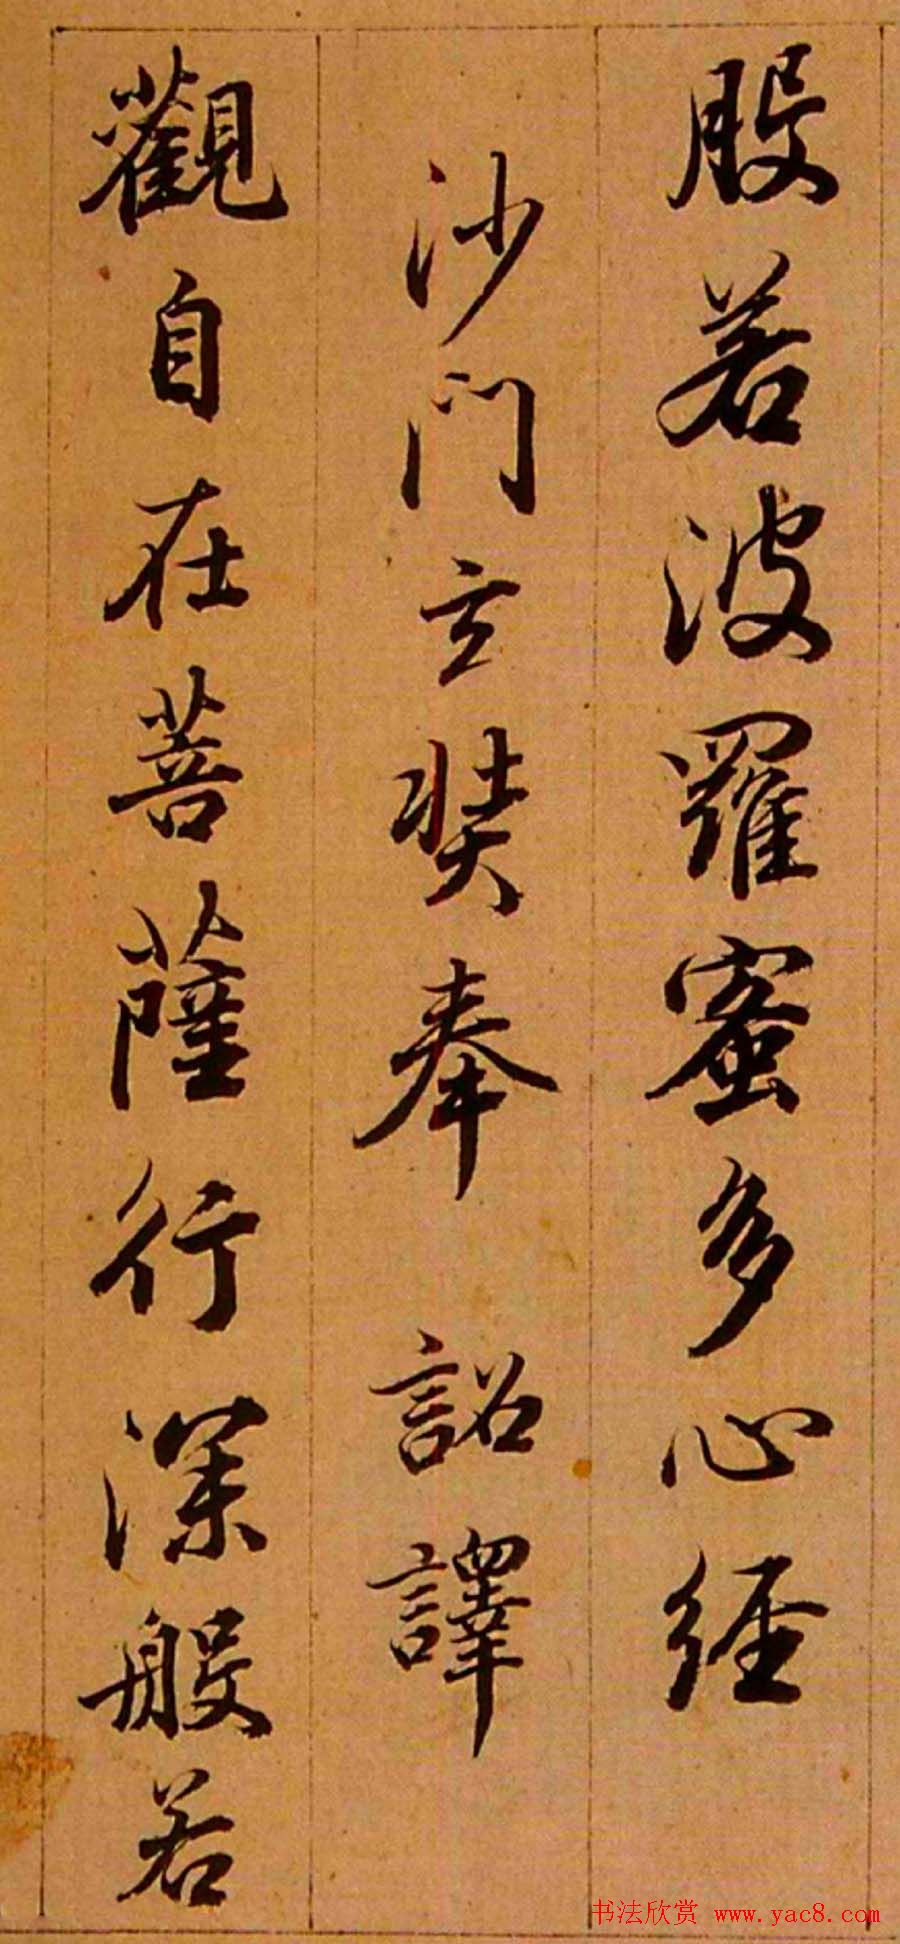 般若波羅蜜多心經
沙門玄奘奉 詔譯
觀自在菩薩行深般若
书法欣赏 www.yac8.com